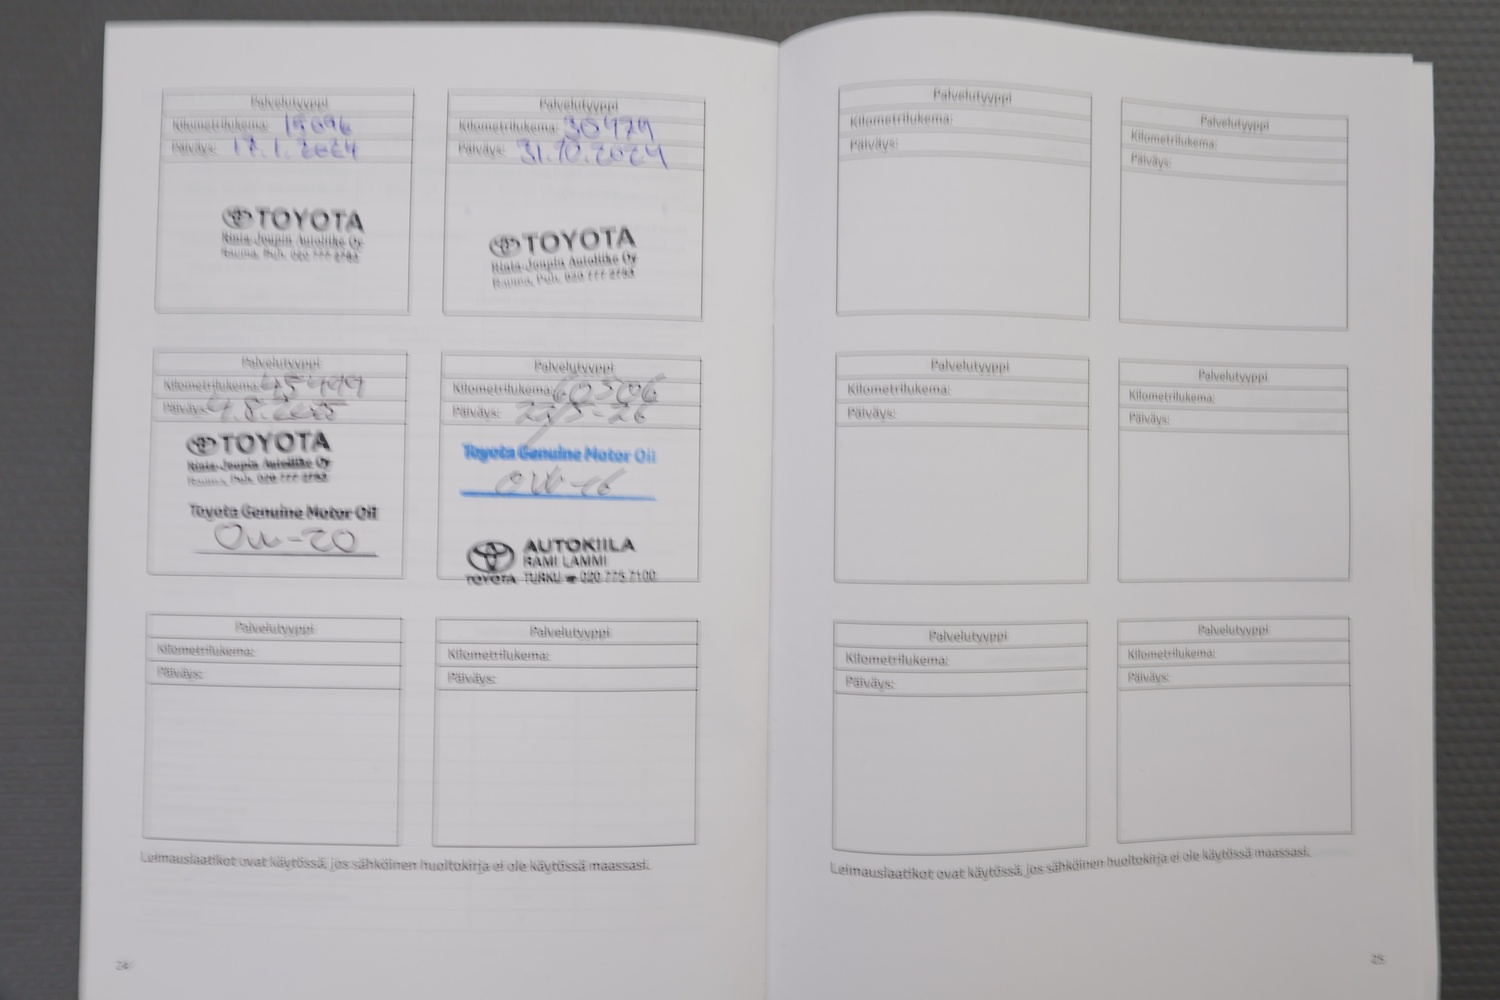 Palvelutyyppi
Kilometrilukema: 15696
Päiväys: 17.1.2024
TOYOTA
Rinta-Joupin Autoliike Oy
Rauma, Puh. 020 777 2793
Palvelutyyppi
Kilometrilukema: 30479
Päiväys: 31.10.2024
TOYOTA
Rinta-Joupin Autoliike Oy
Rauma, Puh. 020 777 2793
Palvelutyyppi
Kilometrilukema:
Päiväys: 4.8.2025
TOYOTA
Rinta-Joupin Autoliike Oy
Rauma, Puh. 020 777 2793
Toyota Genuine Motor Oil
0w-20
Palvelutyyppi
Kilometrilukema: 60506
Päiväys:
Toyota Genuine Motor Oil
0W-16
AUTOKIILA
RAMI LAMMI
TOYOTA TURKU ☎ 020 775 7100
Palvelutyyppi
Kilometrilukema:
Päiväys:
Palvelutyyppi
Kilometrilukema:
Päiväys:
Leimauslaatikot ovat käytössä, jos sähköinen huoltokirja ei ole käytössä maassasi.
24
Palvelutyyppi
Kilometrilukema:
Päiväys:
Palvelutyyppi
Kilometrilukema:
Päiväys:
Palvelutyyppi
Kilometrilukema:
Päiväys:
Palvelutyyppi
Kilometrilukema:
Päiväys:
Palvelutyyppi
Kilometrilukema:
Päiväys:
Palvelutyyppi
Kilometrilukema:
Päiväys:
Leimauslaatikot ovat käytössä, jos sähköinen huoltokirja ei ole käytössä maassasi.
25